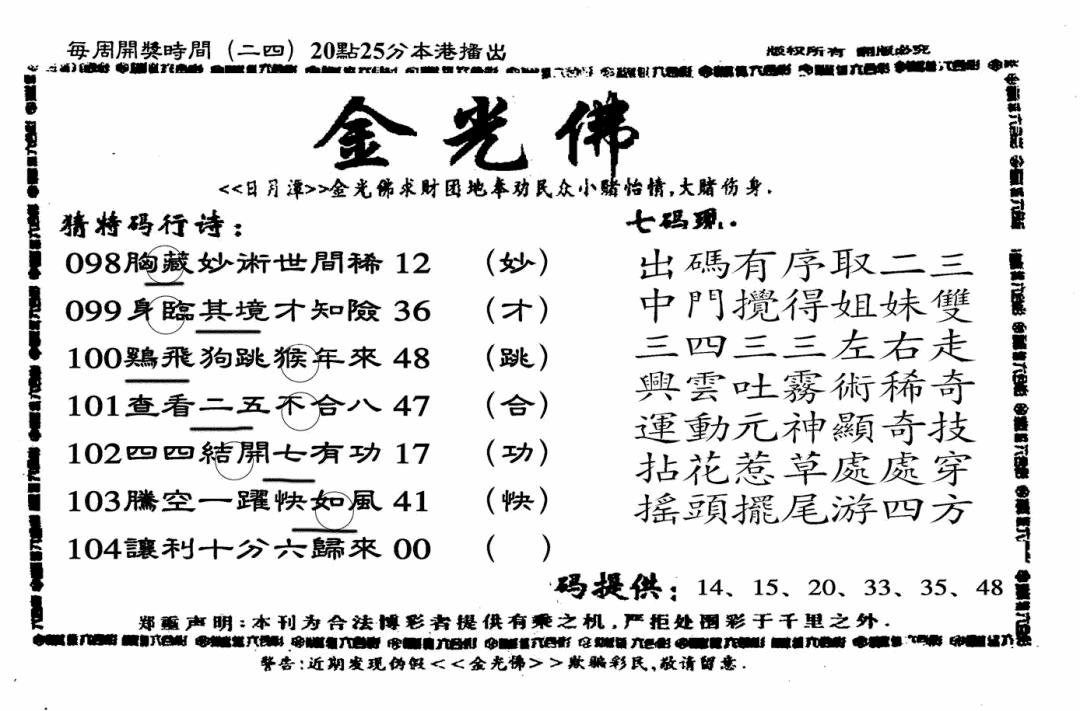 每周開獎時間（二四）20點25分本港播出
版权所有 翻版必究
金光佛
<<日月潭>>金光佛求财团地奉劝民众小赌怡情,大赌伤身.
猜特码行诗：
098胸藏妙術世間稀 12 （妙）
099身臨其境才知險 36 （才）
100鷄飛狗跳猴年來 48 （跳）
101查看二五不合八 47 （合）
102四四結開七有功 17 （功）
103騰空一躍快如風 41 （快）
104讓利十分六歸來 00 （ ）
七码现..
出碼有序取二三
中門攪得姐妹雙
三四三三左右走
興雲吐霧術稀奇
運動元神顯奇技
拈花惹草處處穿
摇頭擺尾游四方
码提供：14、15、20、33、35、48
郑重声明:本刊为合法博彩者提供有乘之机,严拒处围彩于千里之外.
警告:近期发现伪假<<金光佛>>欺骗彩民,敬请留意.